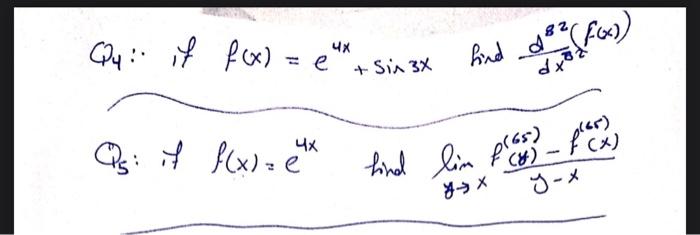 Q4: if f(x) = e^{4x} + Sin 3x find \frac{d^{82}(f(x))}{dx^{82}}
Q5: if f(x) = e^{4x} find \lim_{y→x} \frac{f^{(65)}(y) - f^{(65)}(x)}{y - x}